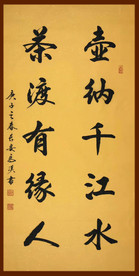 壶纳千江水
茶渡有缘人
庚子之春